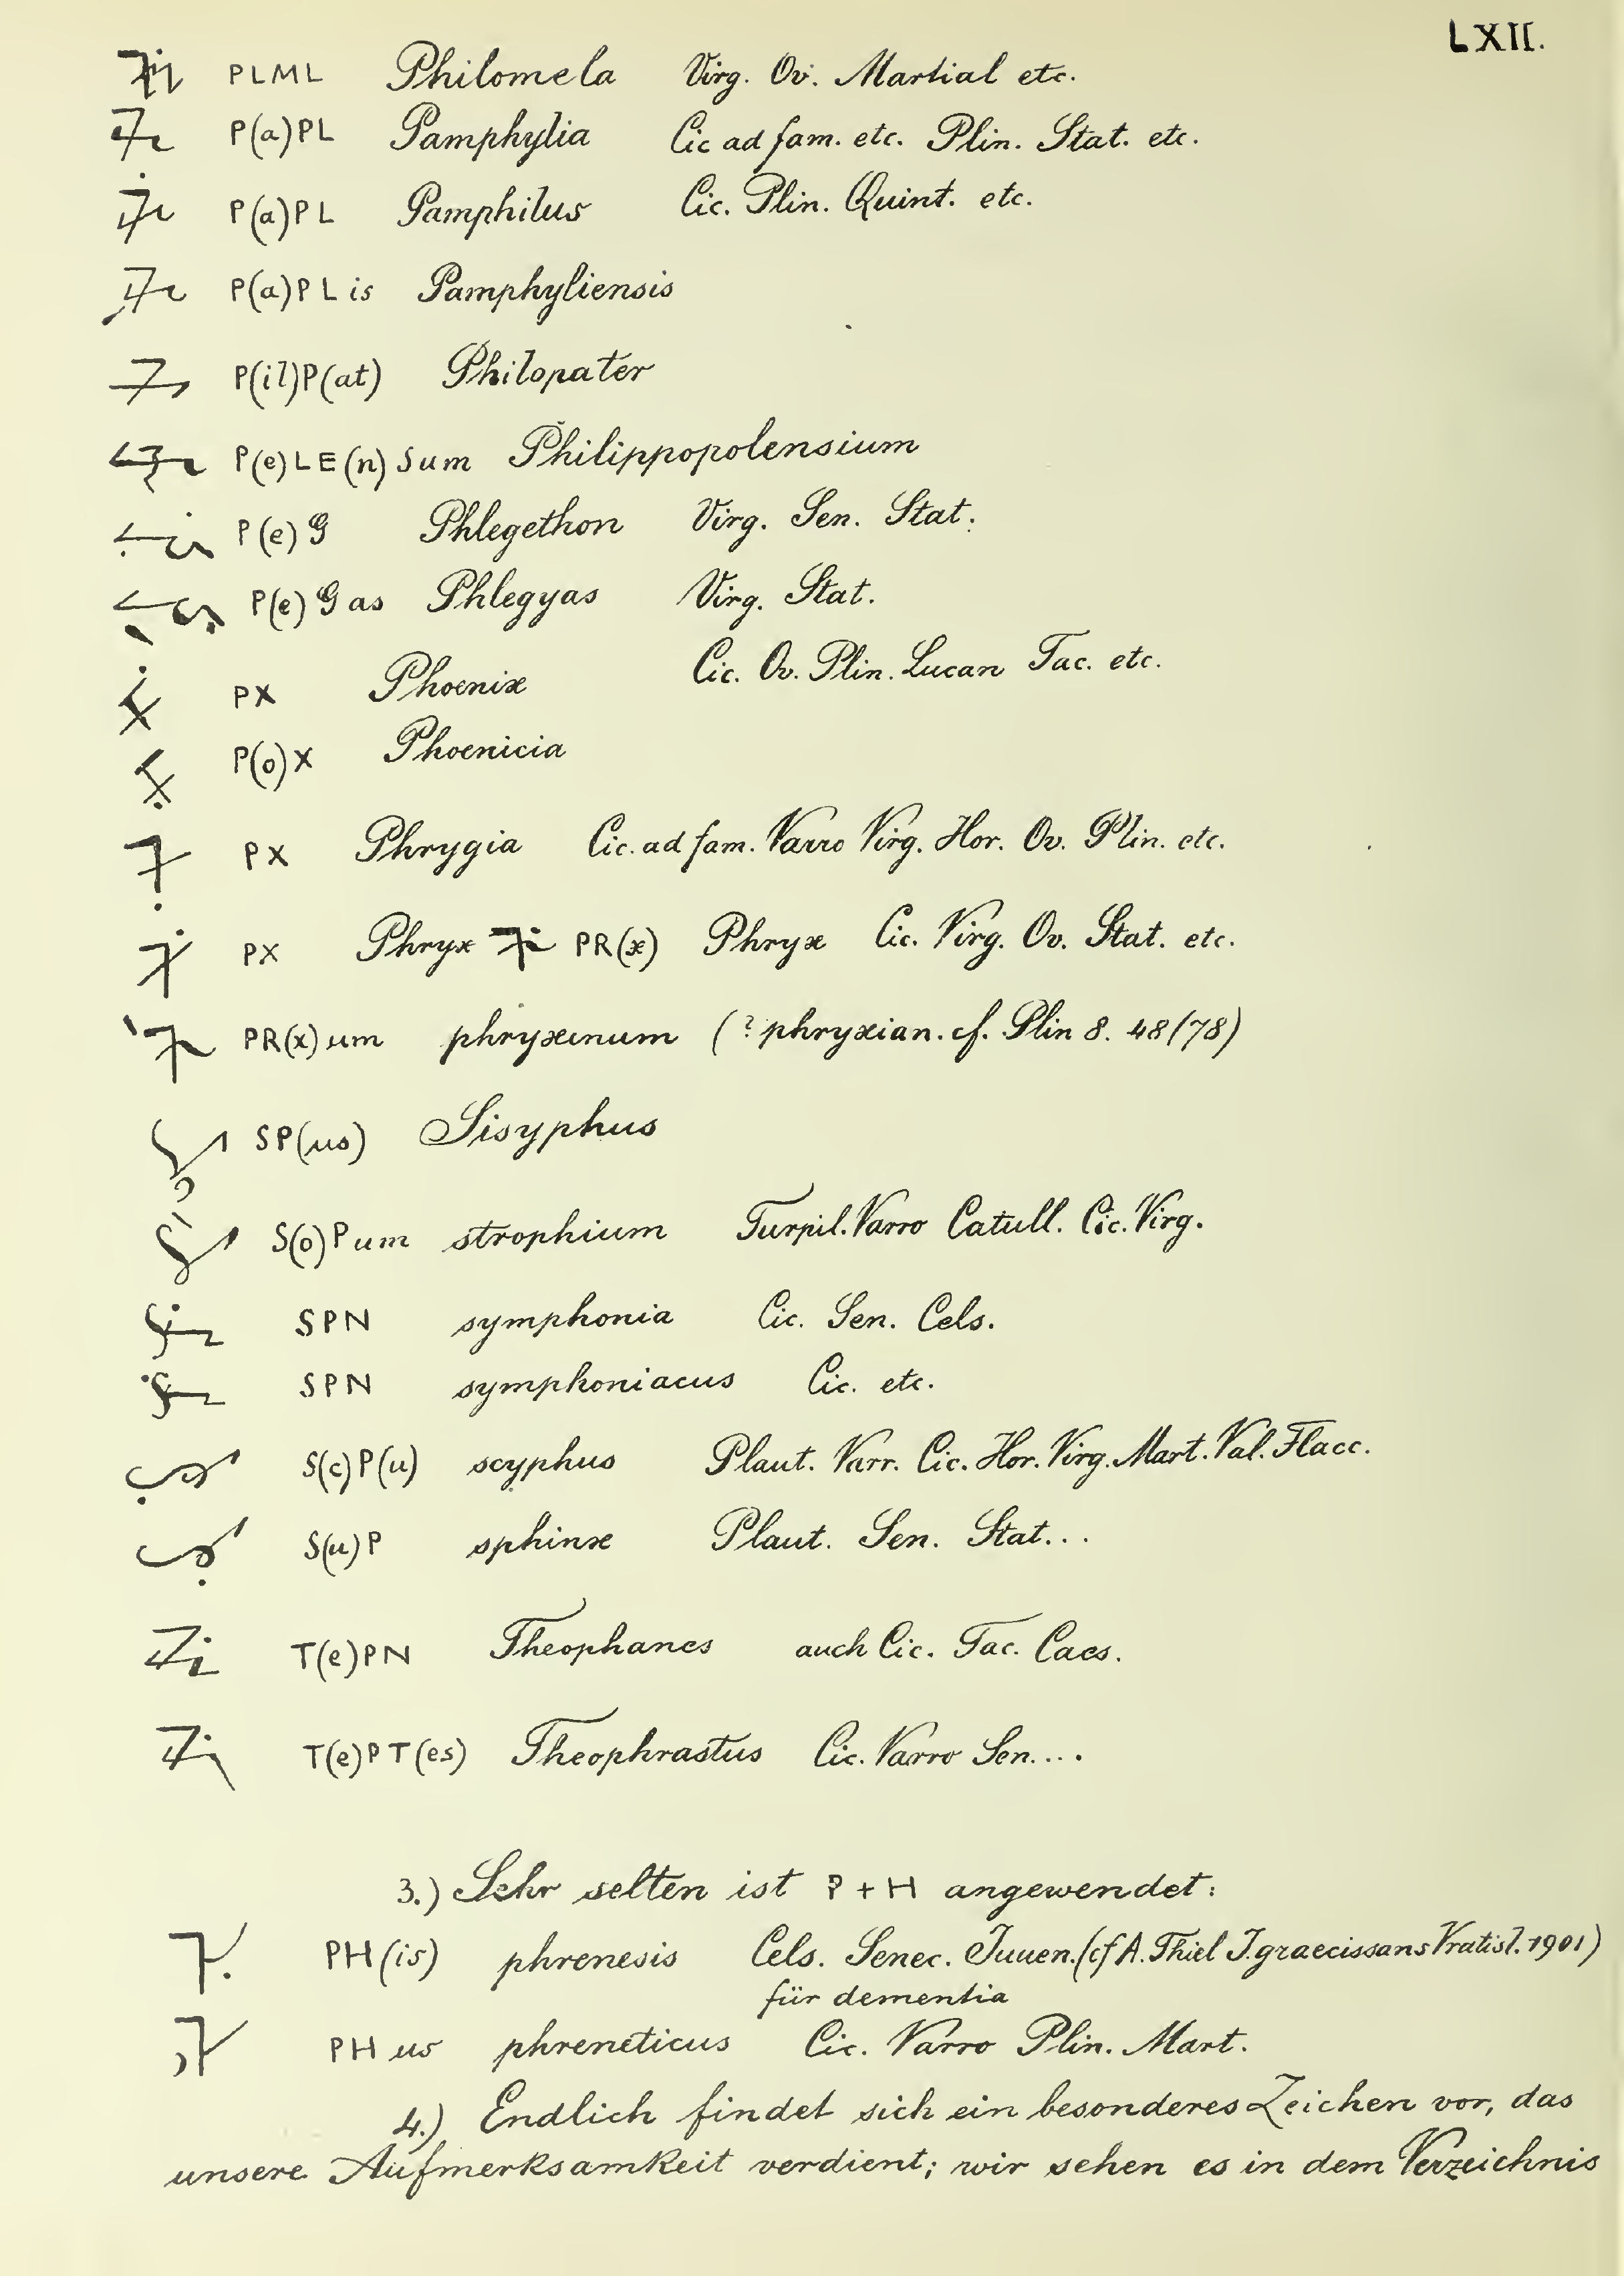 LXII.
PLML Philomela Virg. Ov. Martial etc.
P(a)PL Pamphylia Cic ad fam. etc. Plin. Stat. etc.
P(a)PL Pamphilus Cic. Plin. Quint. etc.
P(a)PL is Pamphyliensis
P(il)P(at) Philopater
P(e)LE(n)Sum Philippopolensium
P(e)G Phlegethon Virg. Sen. Stat.
P(e)G as Phlegyas Virg. Stat.
PX Phoenix Cic. Ov. Plin. Lucan Tac. etc.
P(o)X Phoenicia
PX Phrygia Cic. ad fam. Varro Virg. Hor. Ov. Plin. etc.
PX Phryx PR(x) Phryx Cic. Virg. Ov. Stat. etc.
PR(x)um phryxinum (? phryxian. cf. Plin 8. 48/78)
SP(us) Sisyphus
S(o)Pum strophium Turpil. Varro Catull. Cic. Virg.
SPN symphonia Cic. Sen. Cels.
SPN symphoniacus Cic. etc.
S(c)P(u) scyphus Plaut. Varr. Cic. Hor. Virg. Mart. Val. Flacc.
S(u)P sphinx Plaut. Sen. Stat...
T(e)PN Theophanes auch Cic. Tac. Caes.
T(e)PT(es) Theophrastus Cic. Varro Sen....
3.) Sehr selten ist P + H angewendet:
PH(is) phrenesis Cels. Senec. Iuuen. (cf A. Thiel I. graecissans Vratisl. 1901)
für dementia
PH us phreneticus Cic. Varro Plin. Mart.
4.) Endlich findet sich ein besonderes Zeichen vor, das
unsere Aufmerksamkeit verdient; wir sehen es in dem Verzeichnis